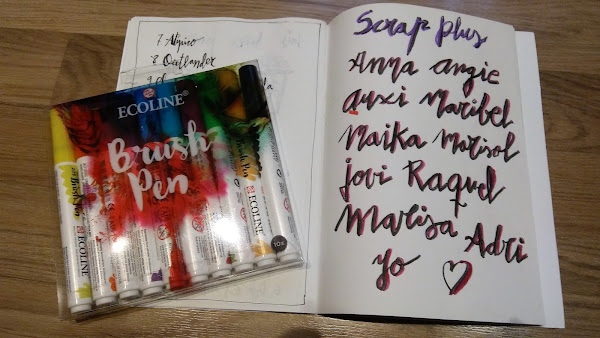 7. Alpino
8 Outlander
ECOLINE®
Brush
Pen
Brush Pen
ECOLINE
ECOLINE
10x
Scrap plus
Anna angie
auxi Maribel
Maika Marisol
jovi Raquel
Marisa Adri
yo